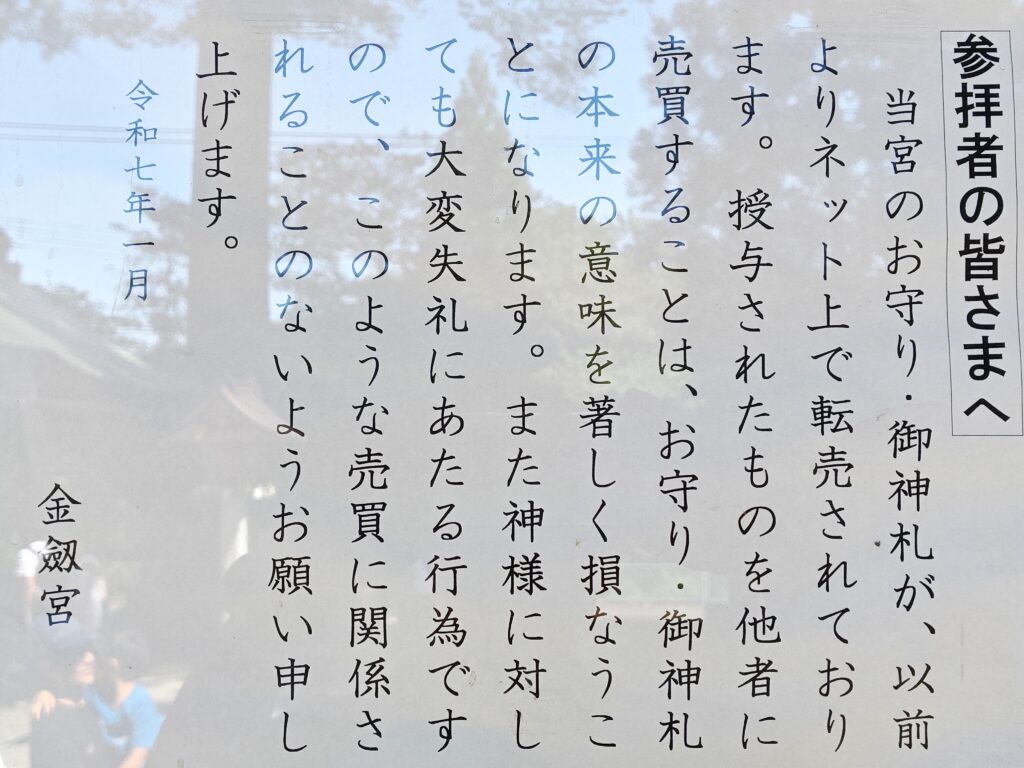 参拝者の皆さまへ
当宮のお守り・御神札が、以前
よりネット上で転売されており
ます。授与されたものを他者に
売買することは、お守り・御神札
の本来の意味を著しく損なうこ
とになります。また神様に対し
ても大変失礼にあたる行為です
ので、このような売買に関係さ
れることのないようお願い申し
上げます。
令和七年一月
金劔宮